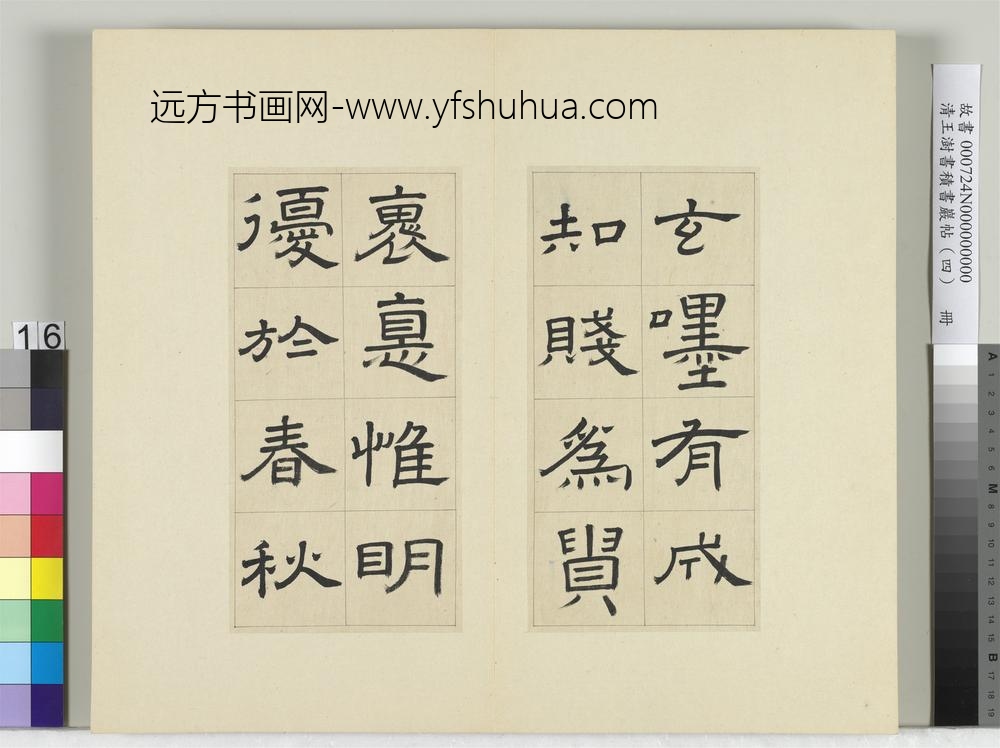 远方书画网-www.yfshuhua.com
玄嚜有成
知賤為貴
褱惪惟明
優於春秋
故書 000724N000000000
清王澍書積書巖帖（四） 冊
16
A 1 2 3 4 5 6 M 8 9 10 11 12 13 14 15 B 17 18 19